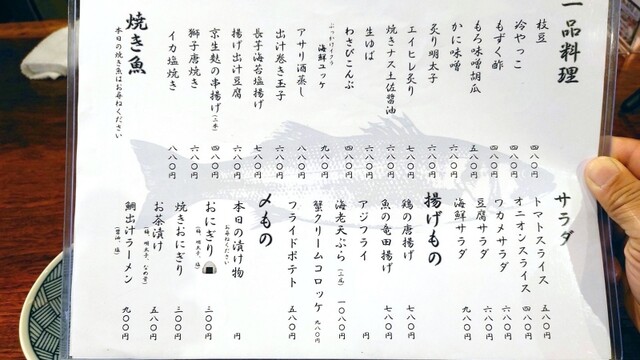 一品料理
枝豆 四八〇円
冷やっこ 四八〇円
もずく酢 四八〇円
もろ味噌胡瓜 五八〇円
かに味噌 六八〇円
炙り明太子 六八〇円
エイヒレ炙り 七八〇円
焼きナス土佐醤油 六八〇円
生ゆば 六八〇円
わさびこんぶ 四八〇円
ぶっかけイクラ
海鮮ユッケ 九八〇円
アサリ酒蒸し 八八〇円
出汁巻き玉子 六八〇円
長子海苔塩揚げ 七八〇円
揚げ出汁豆腐 六八〇円
京生麩の串揚げ(二本) 四八〇円
獅子唐焼き 六八〇円
イカ塩焼き 八八〇円
焼き魚
本日の焼き魚はお尋ねください
サラダ
トマトスライス 五八〇円
オニオンスライス 四八〇円
ワカメサラダ 六八〇円
豆腐サラダ 六八〇円
海鮮サラダ 九八〇円
揚げもの
鶏の唐揚げ 七八〇円
魚の竜田揚げ 七八〇円
アジフライ 円
海老天ぷら(三尾) 一〇八〇円
蟹クリームコロッケ 九八〇円
フライドポテト 五八〇円
〆もの
本日の漬け物 円
お尋ねください
おにぎり 三〇〇円
(梅、明太子、塩)
焼きおにぎり 三〇〇円
お茶漬け 五八〇円
(梅、明太子、なめ茸)
鯛出汁ラーメン 九〇〇円